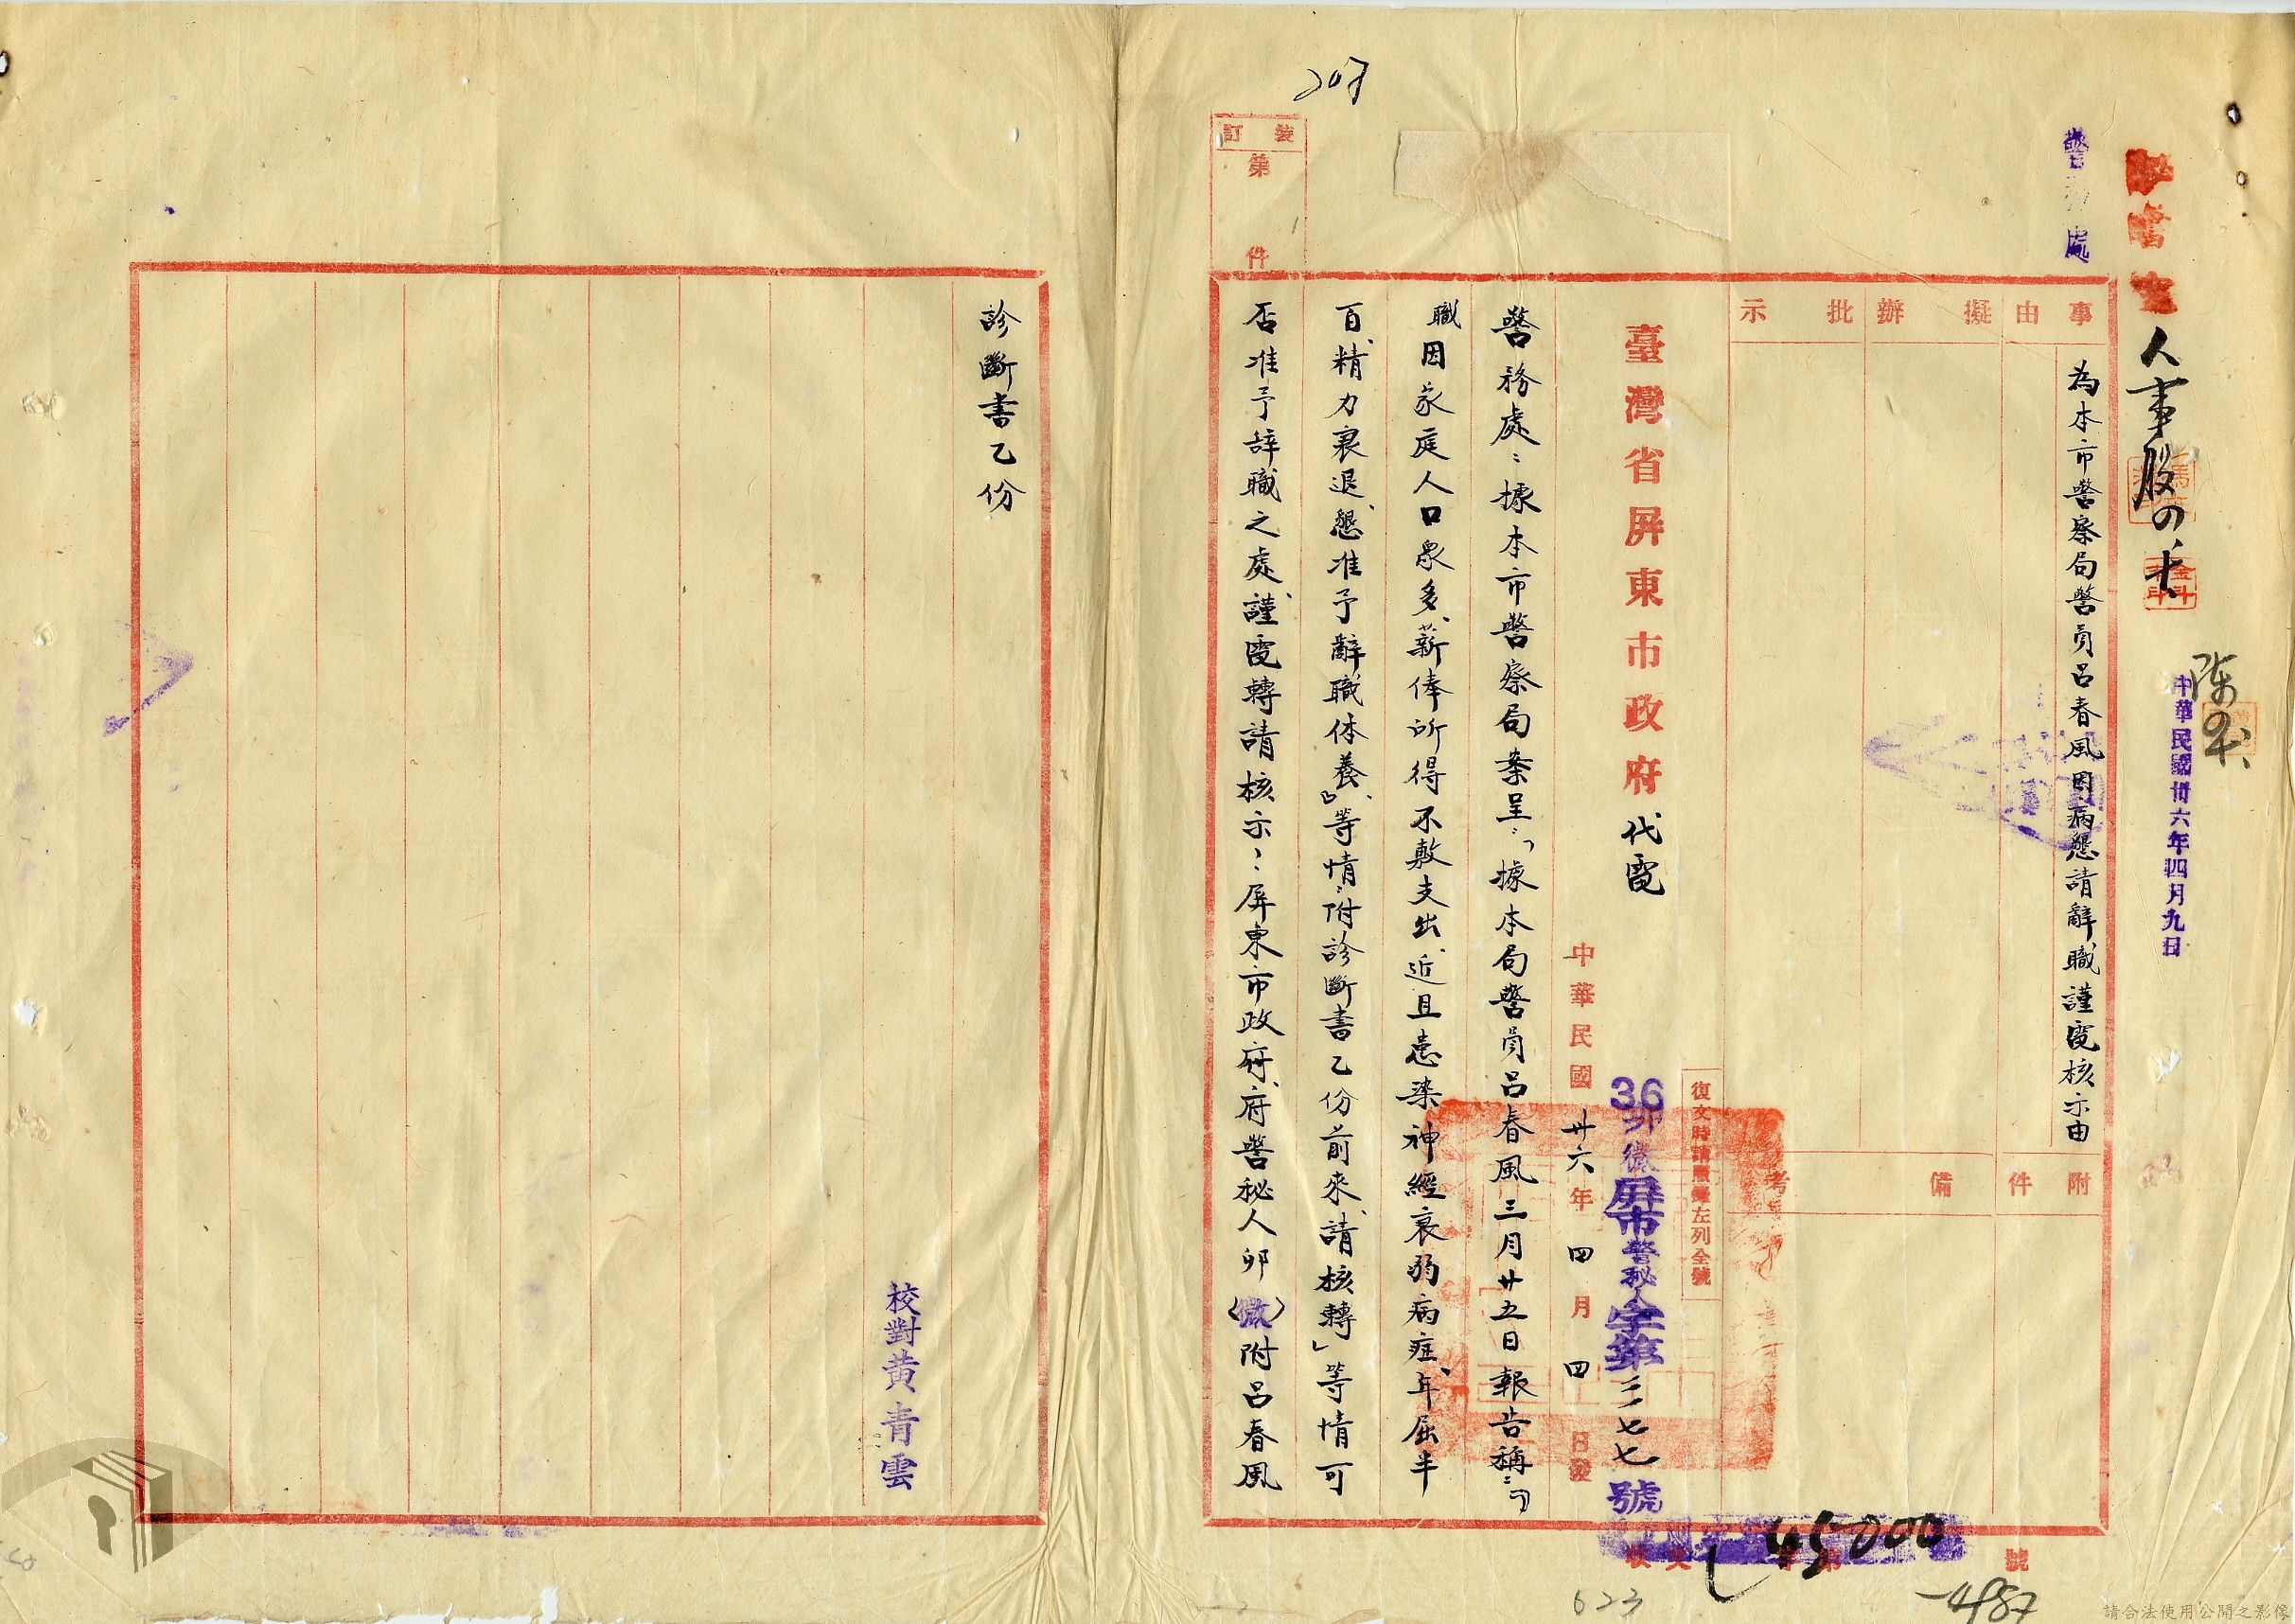 秘書室
人事股
中華民國卅六年四月九日
警務處
事由
為本市警察局警員呂春風因病懇請辭職謹電核示由
附件
擬辦
批示
備考
復文時請照錄左列全號
臺灣省屏東市政府代電
36卯微屏市警秘人字第三三七七號
中華民國卅六年四月四日發
警務處：據本市警察局案呈：「據本局警員呂春風三月廿五日報告稱：「
職因家庭人口眾多、薪俸所得不敷支出、近且患染神經衰弱病症、年屆半
百、精力衰退、懇准予辭職休養」等情、附診斷書乙份前來、請核轉」等情可
否准予辞職之處、謹電轉請核示：屏東市政府、府警秘人卯（微）附呂春風
裝訂
第 件
收文 字第 號
45000
診斷書乙份
校對黃青雲
623
請合法使用公開之影像